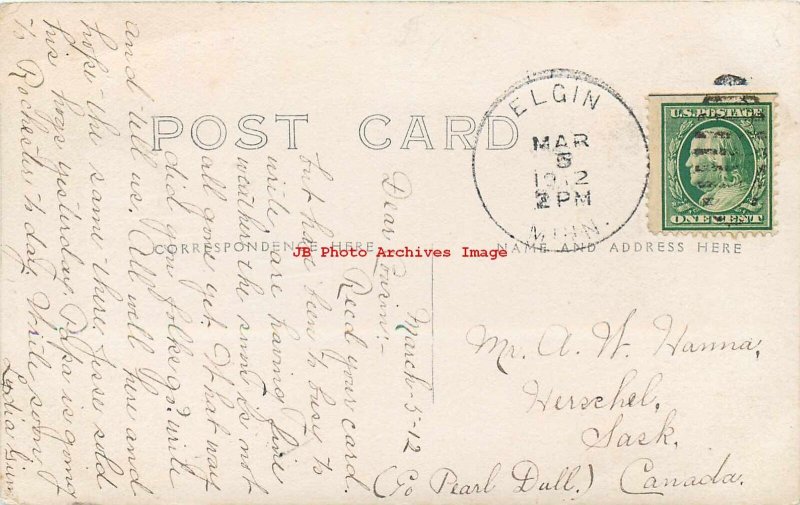 POST CARD
CORRESPONDENCE HERE
NAME AND ADDRESS HERE
ELGIN
MAR
5
1912
2 PM
MINN.
U.S. POSTAGE
ONE CENT
JB Photo Archives Image
March-5-12
Dear Cousin:-
Recd your card.
but have been to busy to
write, are having fine
weather the snow is not
all gone yet. What way
did you folks go? write
and tell us. All well here and
hope the same there. Jesse sold
his hors yesterday. Papa is going
to Rochester to day. Write soon
Lydia
Mr. A. W. Hanna,
Herschel,
Sask.
(Co Pearl Dull.) Canada.